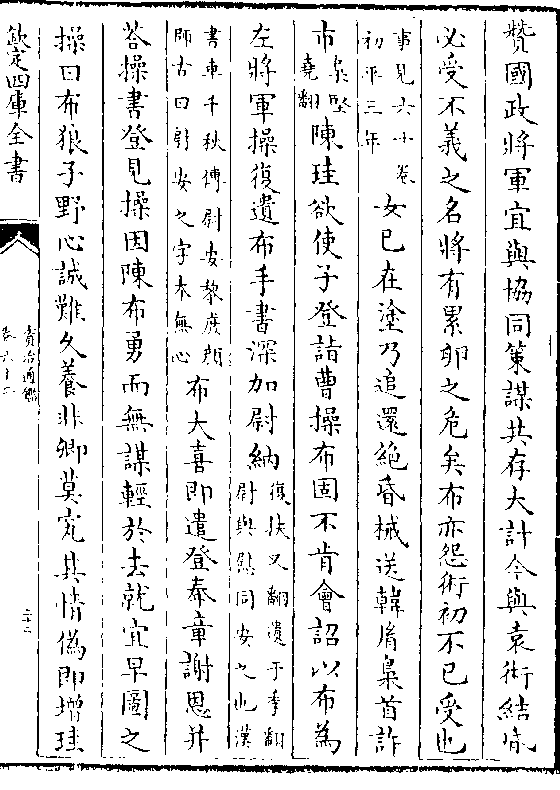 贊國政將軍宜與協同策謀共存大計今與袁術結昏
必受不義之名將有累卵之危矣布亦怨術初不已受也
事見六十卷
初平三年
女已在塗乃追還絶昏械送韓𦙍梟首許
市
梟堅
堯翻
陳珪欲使子登詣曹操布固不肯會詔以布為
左將軍操復遺布手書深加尉納
復扶又翻遺于季翻
尉與慰同安之也漢
書車千秋傳尉安黎庶顔
師古曰尉安之字本無心
布大喜即遣登奉章謝恩并
荅操書登見操因陳布勇而無謀輕於去就宜早圖之
操曰布狼子野心誠難久養非卿莫究其情偽即增珪
欽定四庫全書
資治通鑑
卷六十二
二十二